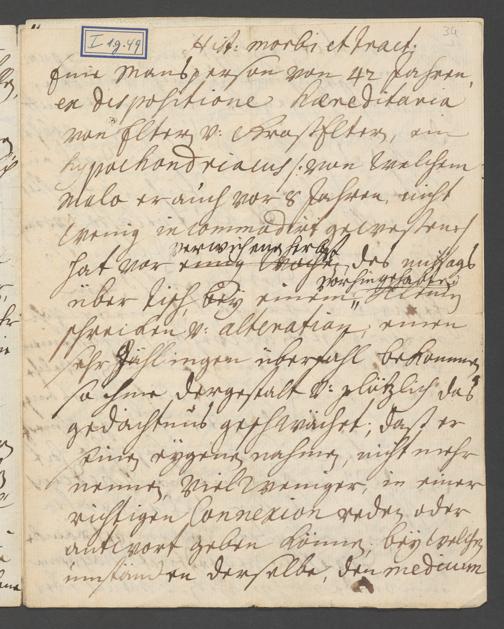 I 19.49
34
Hist: morbi et tract:
Eine Mansperson von 42 Jahren,
ex dispositione hæreditaria
von Elter v: Großelter, ein
hypochondriacus /: von welchem
malo er auch vor 8 Jahren, nicht
wenig incommodirt gewesen
hat vor verwichene Herbst des mittags
über tisch, bey einem vorhingehabten
schrecken v: alteration, einen
sehr Jählingen überfahl bekommen
so ihme dergestalt v: plötzlich das
gedächtnus geschwächet, daß er
seine eygene nahmen, nicht mehr
nennen, viel weniger, in einer
richtigen Connexion reden oder
antwort geben könne, bey welchen
umständen derselbe, den medicum